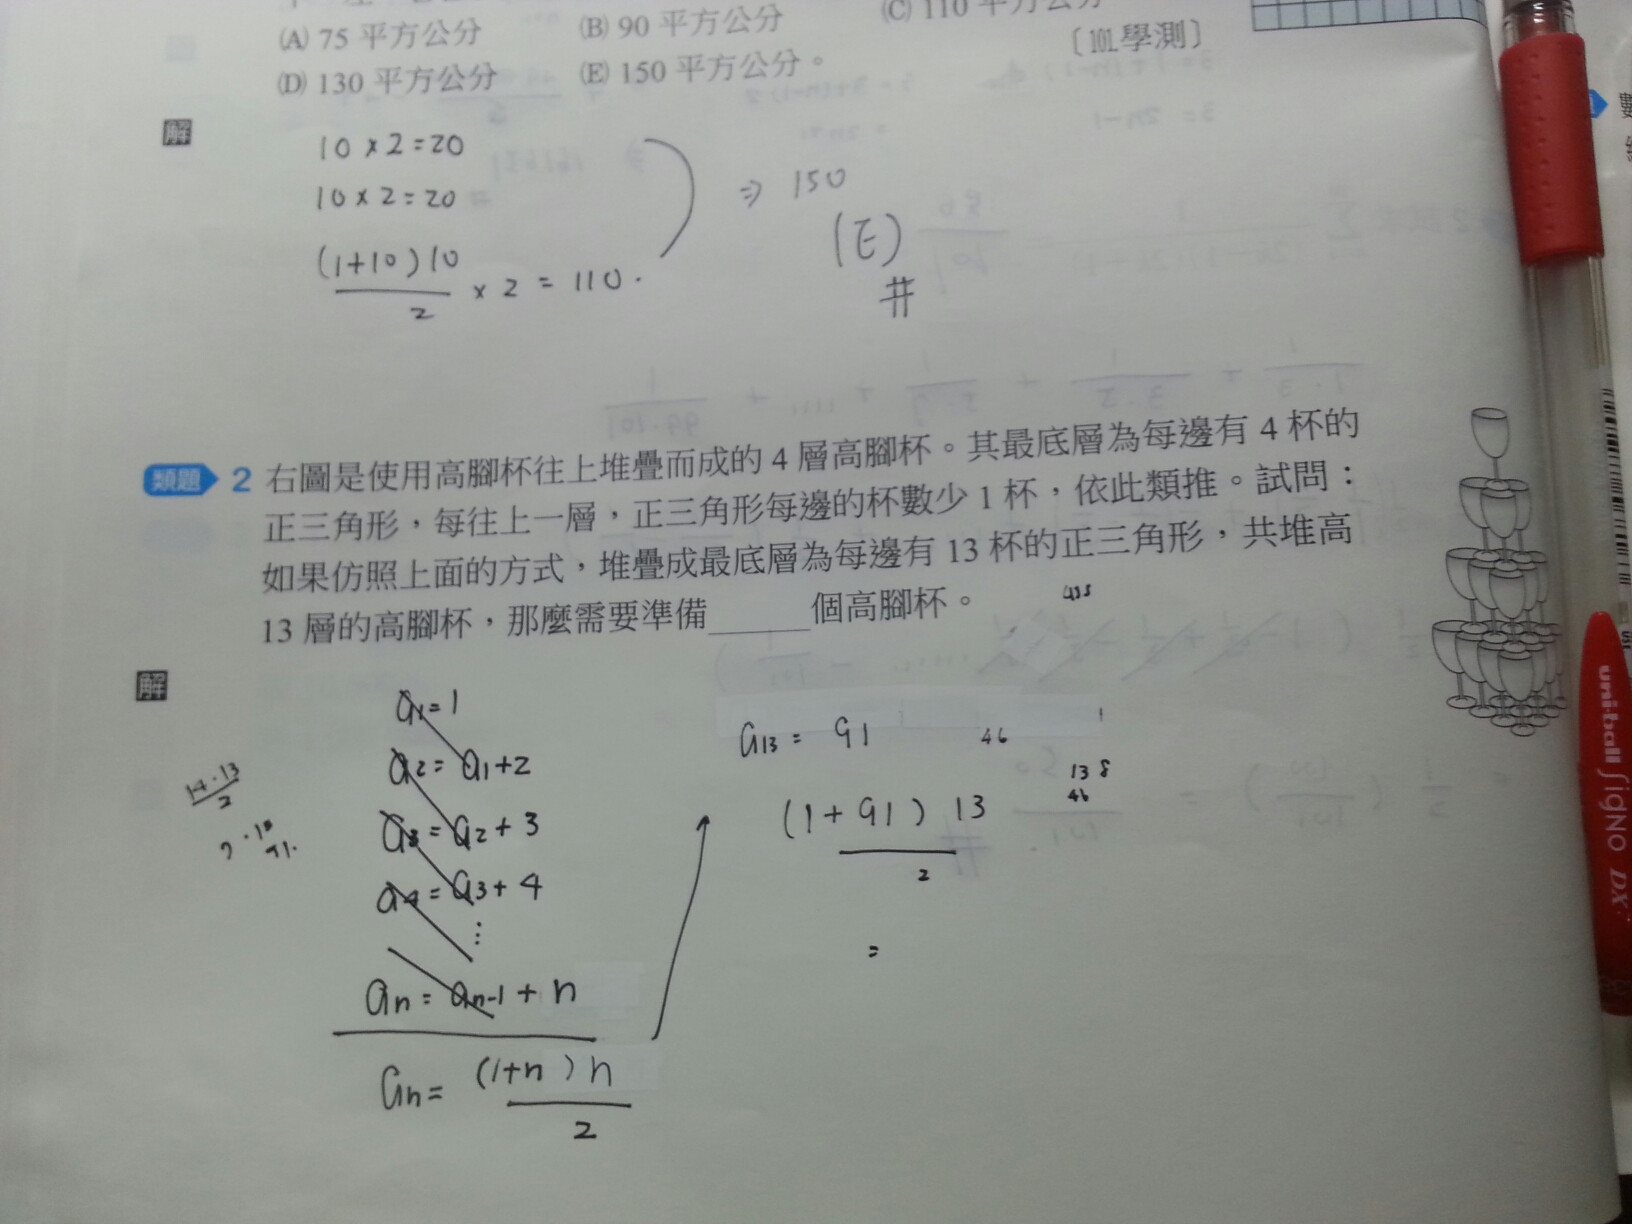 (A) 75 平方公分 (B) 90 平方公分 (C) 110 平方公分
(D) 130 平方公分 (E) 150 平方公分。 〔101.學測〕
解
10 × 2 = 20
10 × 2 = 20
(1+10)10/2 × 2 = 110.
⇒ 150
(E)
#
類題 2 右圖是使用高腳杯往上堆疊而成的 4 層高腳杯。其最底層為每邊有 4 杯的
正三角形，每往上一層，正三角形每邊的杯數少 1 杯，依此類推。試問：
如果仿照上面的方式，堆疊成最底層為每邊有 13 杯的正三角形，共堆高
13 層的高腳杯，那麼需要準備______個高腳杯。
455
解
a1 = 1
a2 = a1 + 2
a3 = a2 + 3
a4 = a3 + 4
⋮
an = an-1 + n
an = (1+n)n/2
14·13/2
91.
a13 = 91
46
138
46
(1+91)13/2
=
uni-ball SigNO DX